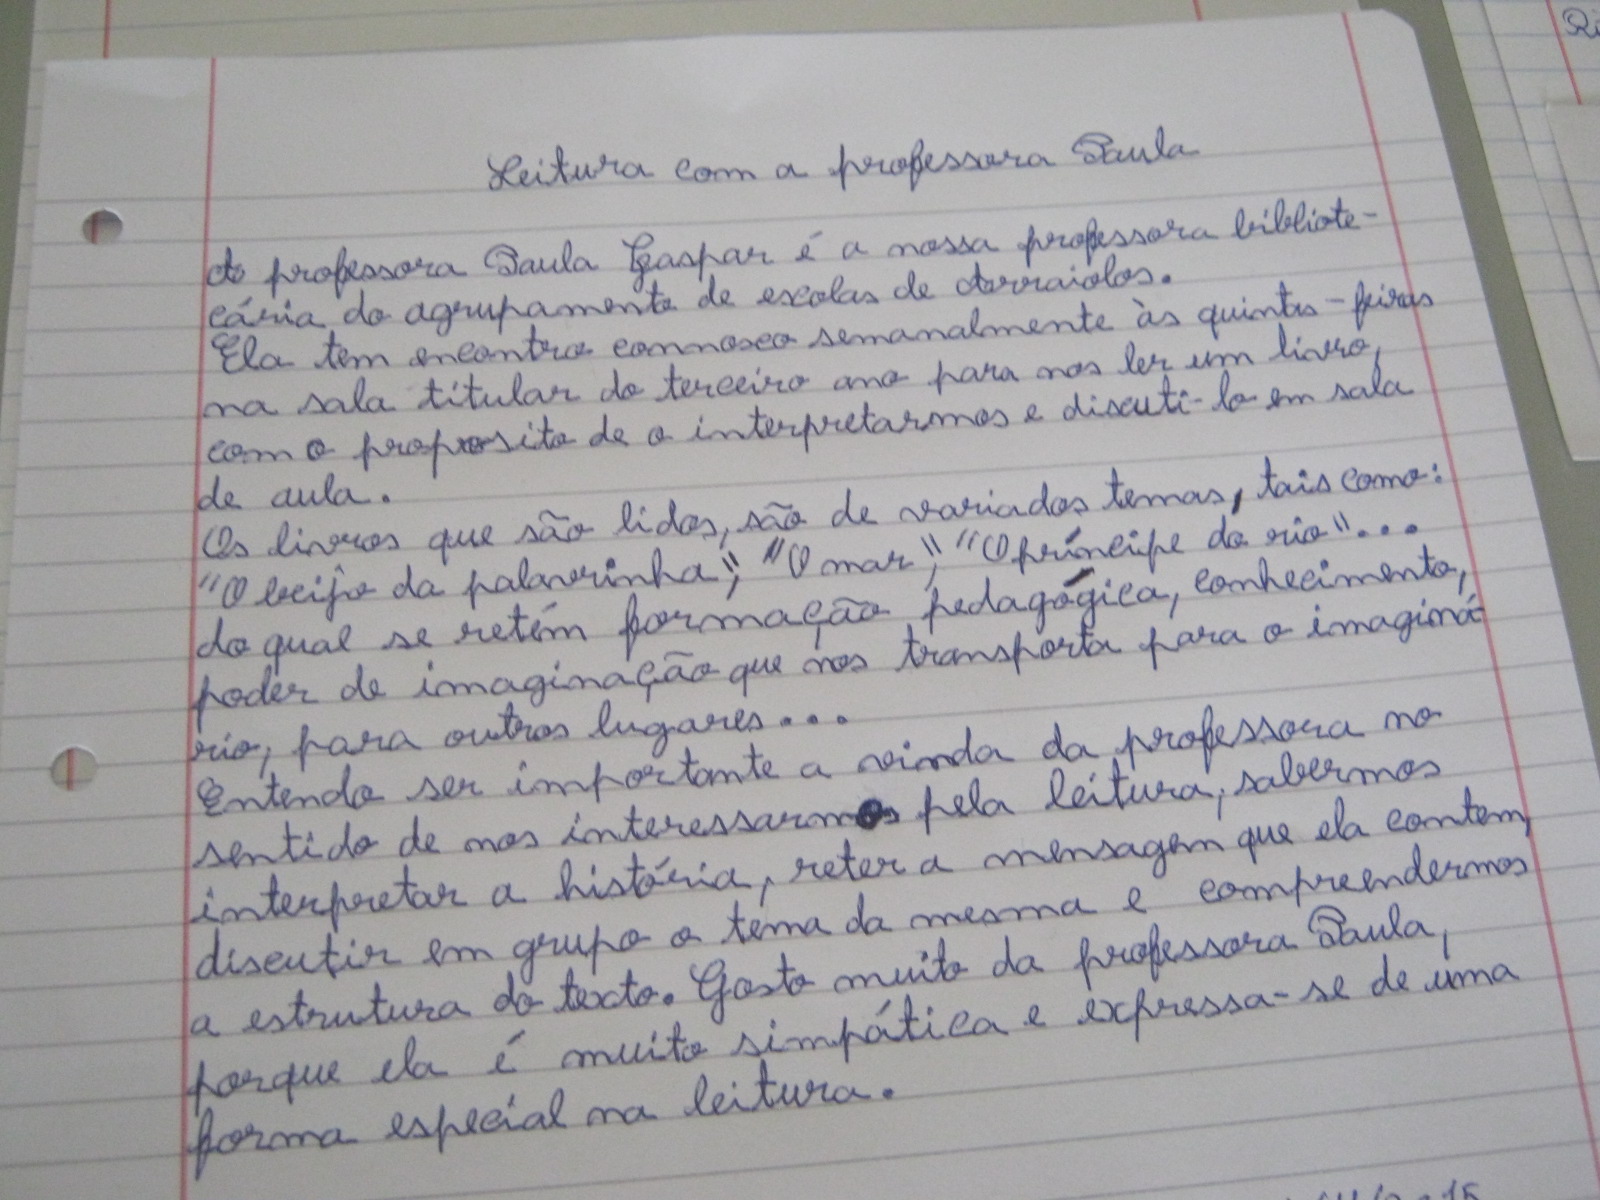 Leitura com a professora Paula
A professora Paula Gaspar é a nossa professora bibliote-
cária do agrupamento de escolas de Arraiolos.
Ela tem encontro connosco semanalmente às quintas-feiras
na sala titular do terceiro ano para nos ler um livro,
com o proposito de o interpretarmos e discuti-lo em sala
de aula.
Os livros que são lidos, são de variados temas, tais como:
"O beijo da palavrinha", "O mar", "O príncipe do rio"...
do qual se retém formação pedagógica, conhecimento,
poder de imaginação que nos transporta para o imaginá
rio, para outros lugares...
Entendo ser importante a vinda da professora no
sentido de nos interessarmos pela leitura, sabermos
interpretar a história, reter a mensagem que ela contem,
discutir em grupo o tema da mesma e compreendermos
a estrutura do texto. Gosto muito da professora Paula,
porque ela é muito simpática e expressa-se de uma
forma especial na leitura.
Ri